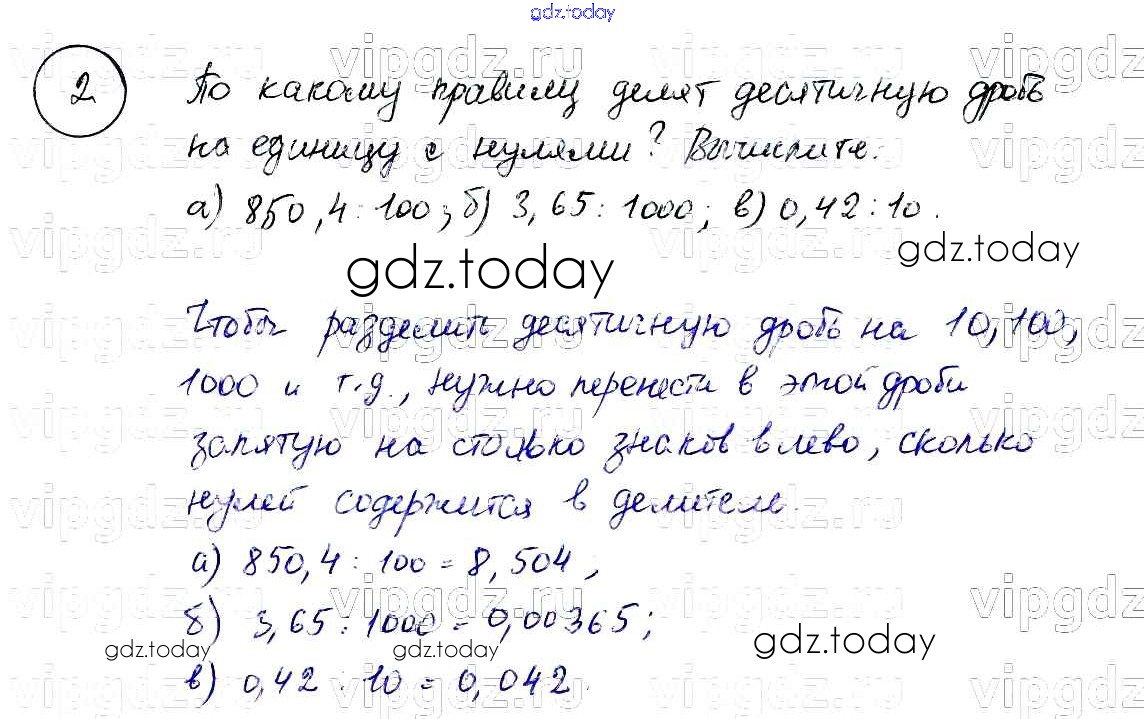 gdz.today
2 По какому правилу делят десятичную дробь
на единицу с нулями? Вычислите:
а) 850,4 : 100; б) 3,65 : 1000; в) 0,42 : 10.
gdz.today
gdz.today
Чтобы разделить десятичную дробь на 10, 100,
1000 и т.д., нужно перенести в этой дроби
запятую на столько знаков влево, сколько
нулей содержится в делителе.
а) 850,4 : 100 = 8,504,
б) 3,65 : 1000 = 0,00365;
gdz.today gdz.today gdz.today
в) 0,42 : 10 = 0,042.
vipgdz.ru